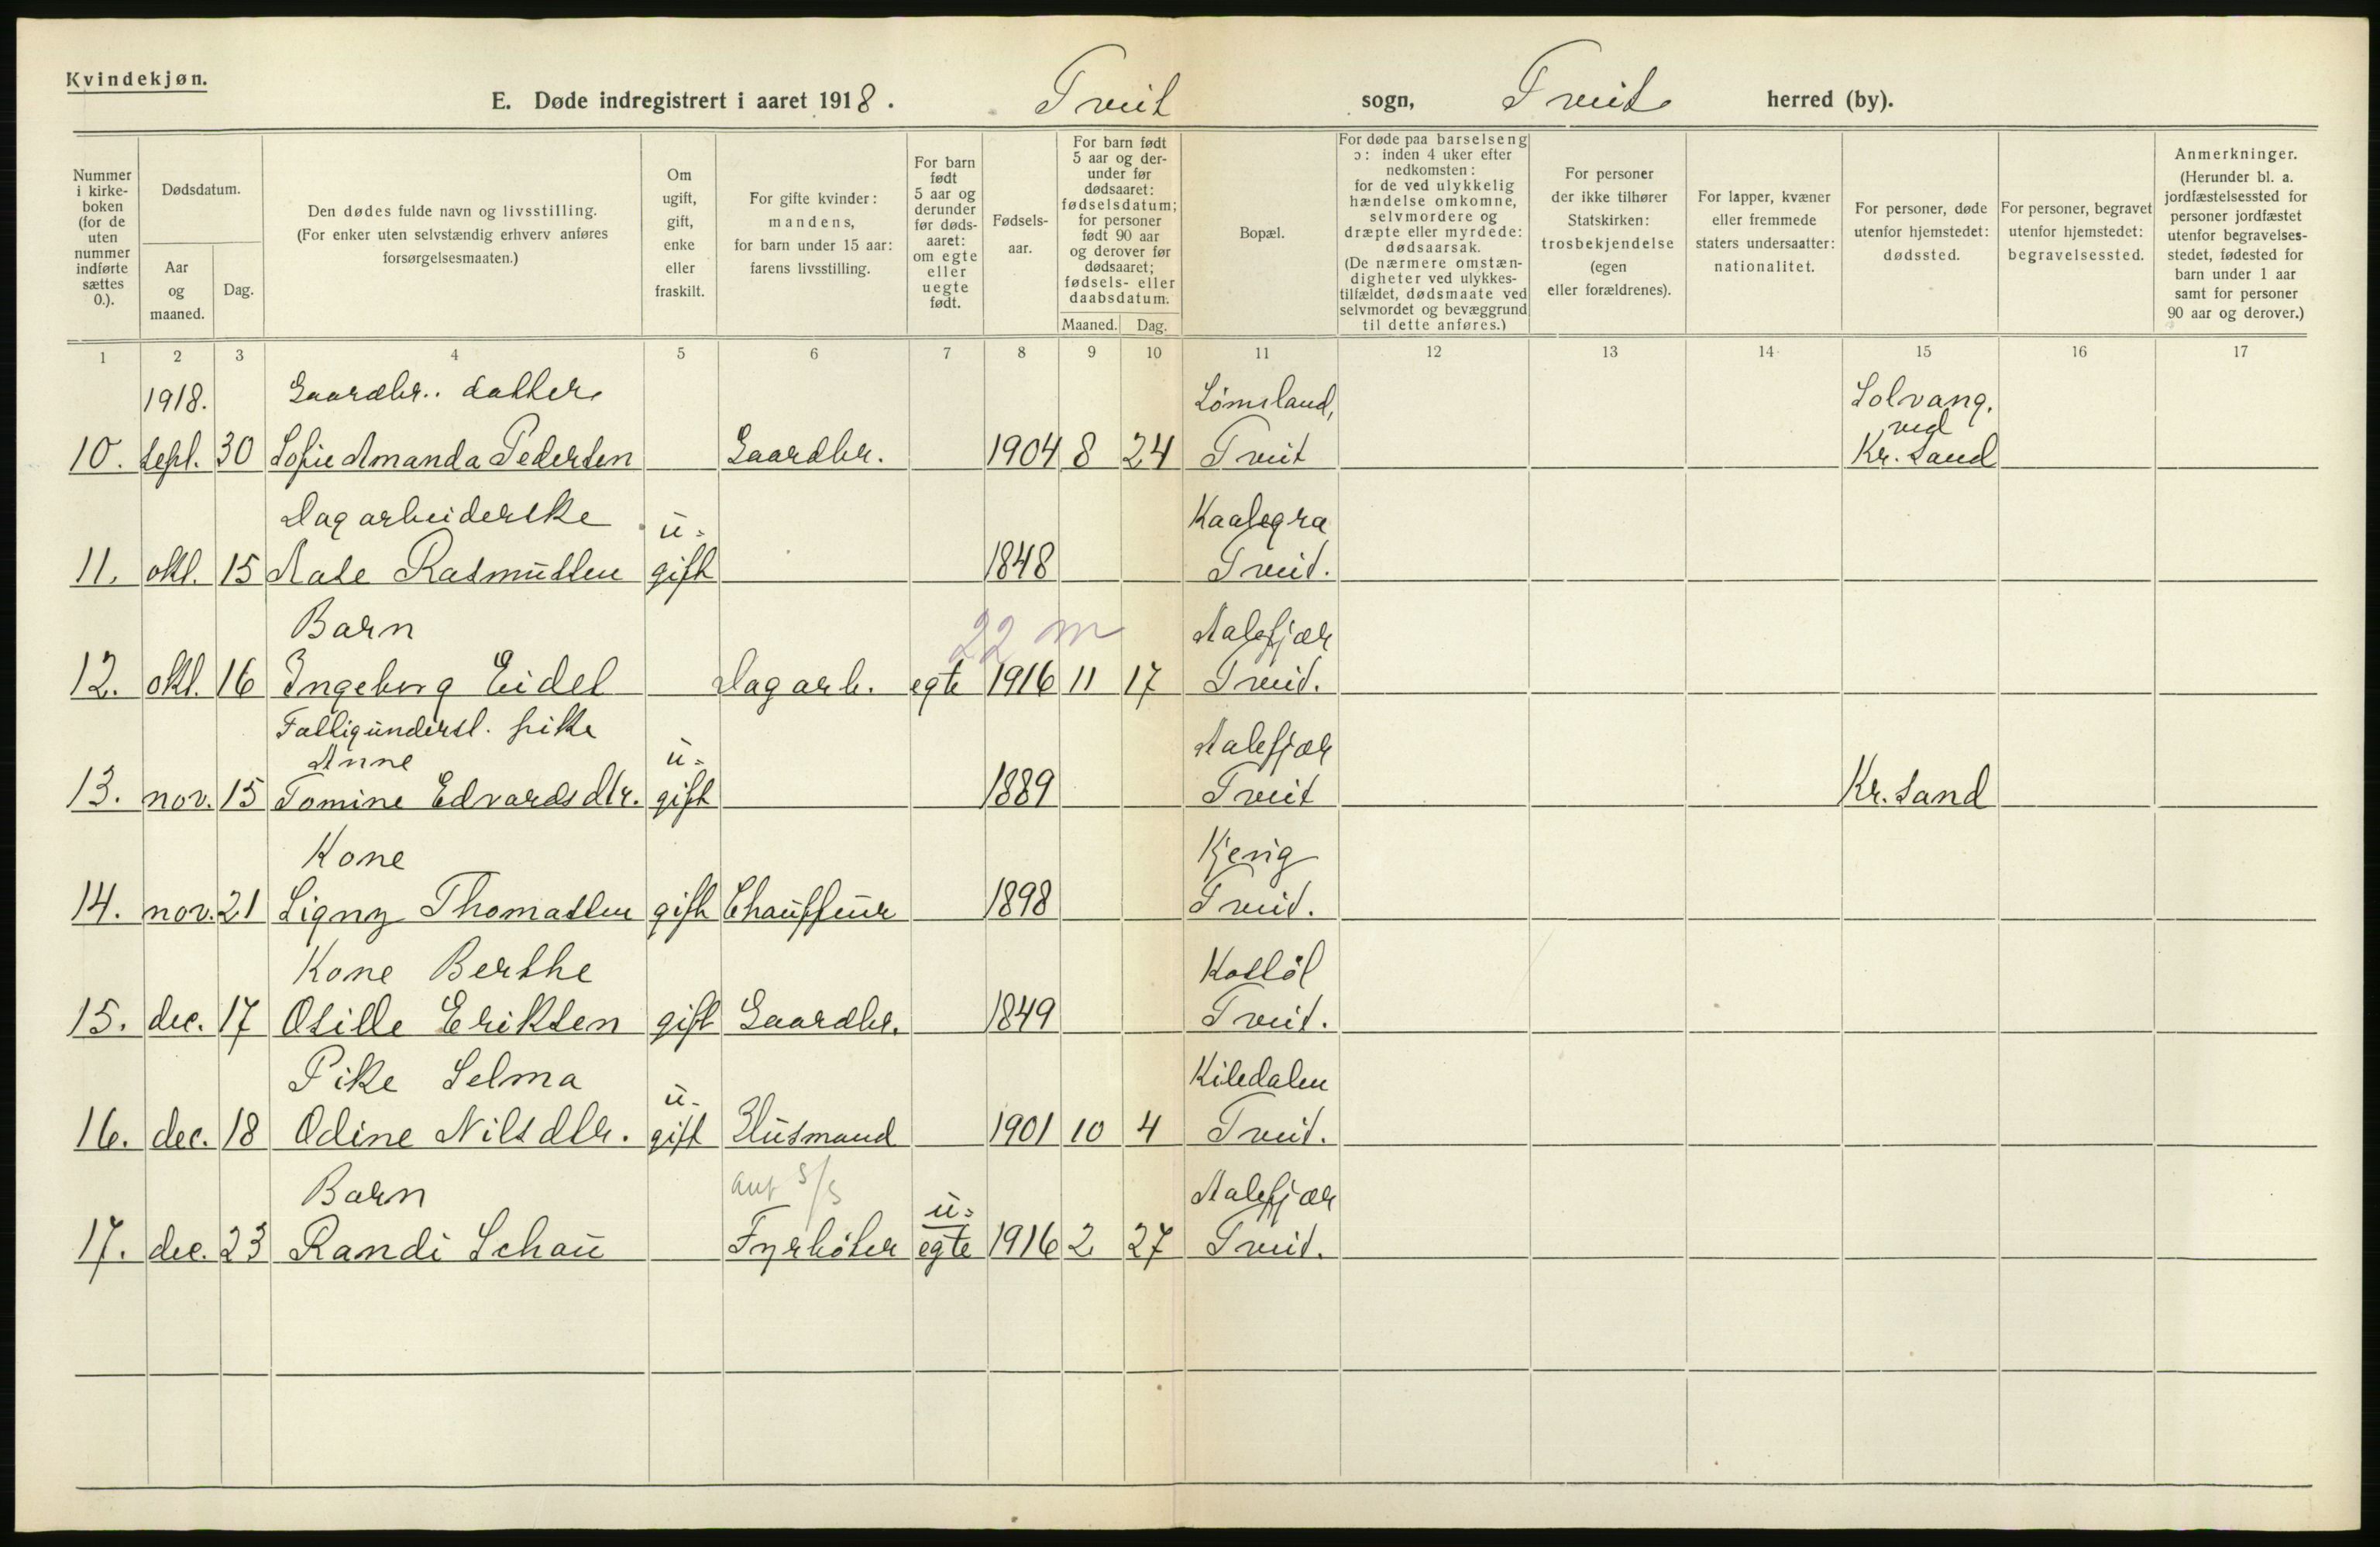 Kvindekjøn.
E. Døde indregistrert i aaret 1918. Tveit sogn, Tveit herred (by).
Nummer i kirkeboken (for de uten nummer indførte sættes 0.).
Dødsdatum.
Aar og maaned.
Dag.
Den dødes fulde navn og livsstilling.
(For enker uten selvstændig erhverv anføres forsørgelsesmaaten.)
Om ugift, gift, enke eller fraskilt.
For gifte kvinder: mandens, for barn under 15 aar: farens livsstilling.
For barn født 5 aar og derunder før dødsaaret: om egte eller uegte født.
Fødselsaar.
For barn født 5 aar og derunder før dødsaaret: fødselsdatum; for personer født 90 aar og derover før dødsaaret; fødsels- eller daabsdatum.
Maaned. Dag.
Bopæl.
For døde paa barselseng ɔ: inden 4 uker efter nedkomsten: for de ved ulykkelig hændelse omkomne, selvmordere og dræpte eller myrdede: dødsaarsak.
(De nærmere omstændigheter ved ulykkestilfældet, dødsmaate ved selvmordet og bevæggrund til dette anføres.)
For personer der ikke tilhører Statskirken: trosbekjendelse (egen eller forældrenes).
For lapper, kvæner eller fremmede staters undersaatter: nationalitet.
For personer, døde utenfor hjemstedet: dødssted.
For personer, begravet utenfor hjemstedet: begravelsessted.
Anmerkninger.
(Herunder bl. a. jordfæstelsessted for personer jordfæstet utenfor begravelsesstedet, fødested for barn under 1 aar samt for personer 90 aar og derover.)
1 2 3 4 5 6 7 8 9 10 11 12 13 14 15 16 17
1918. Gaardbr. datter Lømsland, Solvang, ved
10. sept. 30 Sofie Amanda Pedersen Gaardbr. 1904 8 24 Tveit Kr. sand
Dagarbeiderske u= Kaalegra
11. okt. 15 Aase Rasmussen gift 1848 Tveit.
Barn 22 m Aalefjær
12. okt. 16 Ingeborg Eidet Dagarb. egte 1916 11 17 Tveit.
Fattigunderst. pike Anne u= Aalefjær
13. nov. 15 Tomine Edvardsdtr. gift 1889 Tveit Kr. sand
Kone Kjevig
14. nov. 21 Signy Thomassen gift Chauffeur 1898 Tveit.
Kone Berthe Kostøl
15. dec. 17 Osille Eriksen gift Gaardbr. 1849 Tveit.
Pike Selma u- Kiledalen
16. dec. 18 Odine Nilsdtr. gift Husmand 1901 10 4 Tveit.
Barn u= Aalefjær
17. dec. 23 Randi Schau Fyrbøter egte 1916 2 27 Tveit.